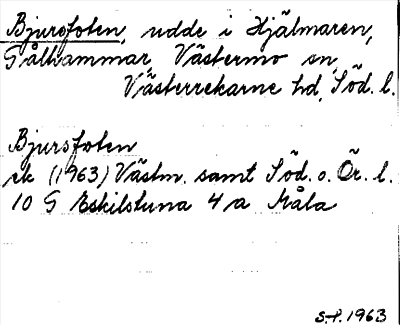 Bjursfoten, udde i Hjälmaren,
Gålhammar Västermo sn,
Västerrekarne hd, Söd. l.
Bjursfoten
ek (1963) Västm. samt Söd. o. Ör. l.
10 G Eskilstuna 4 a Måla
S.P. 1963